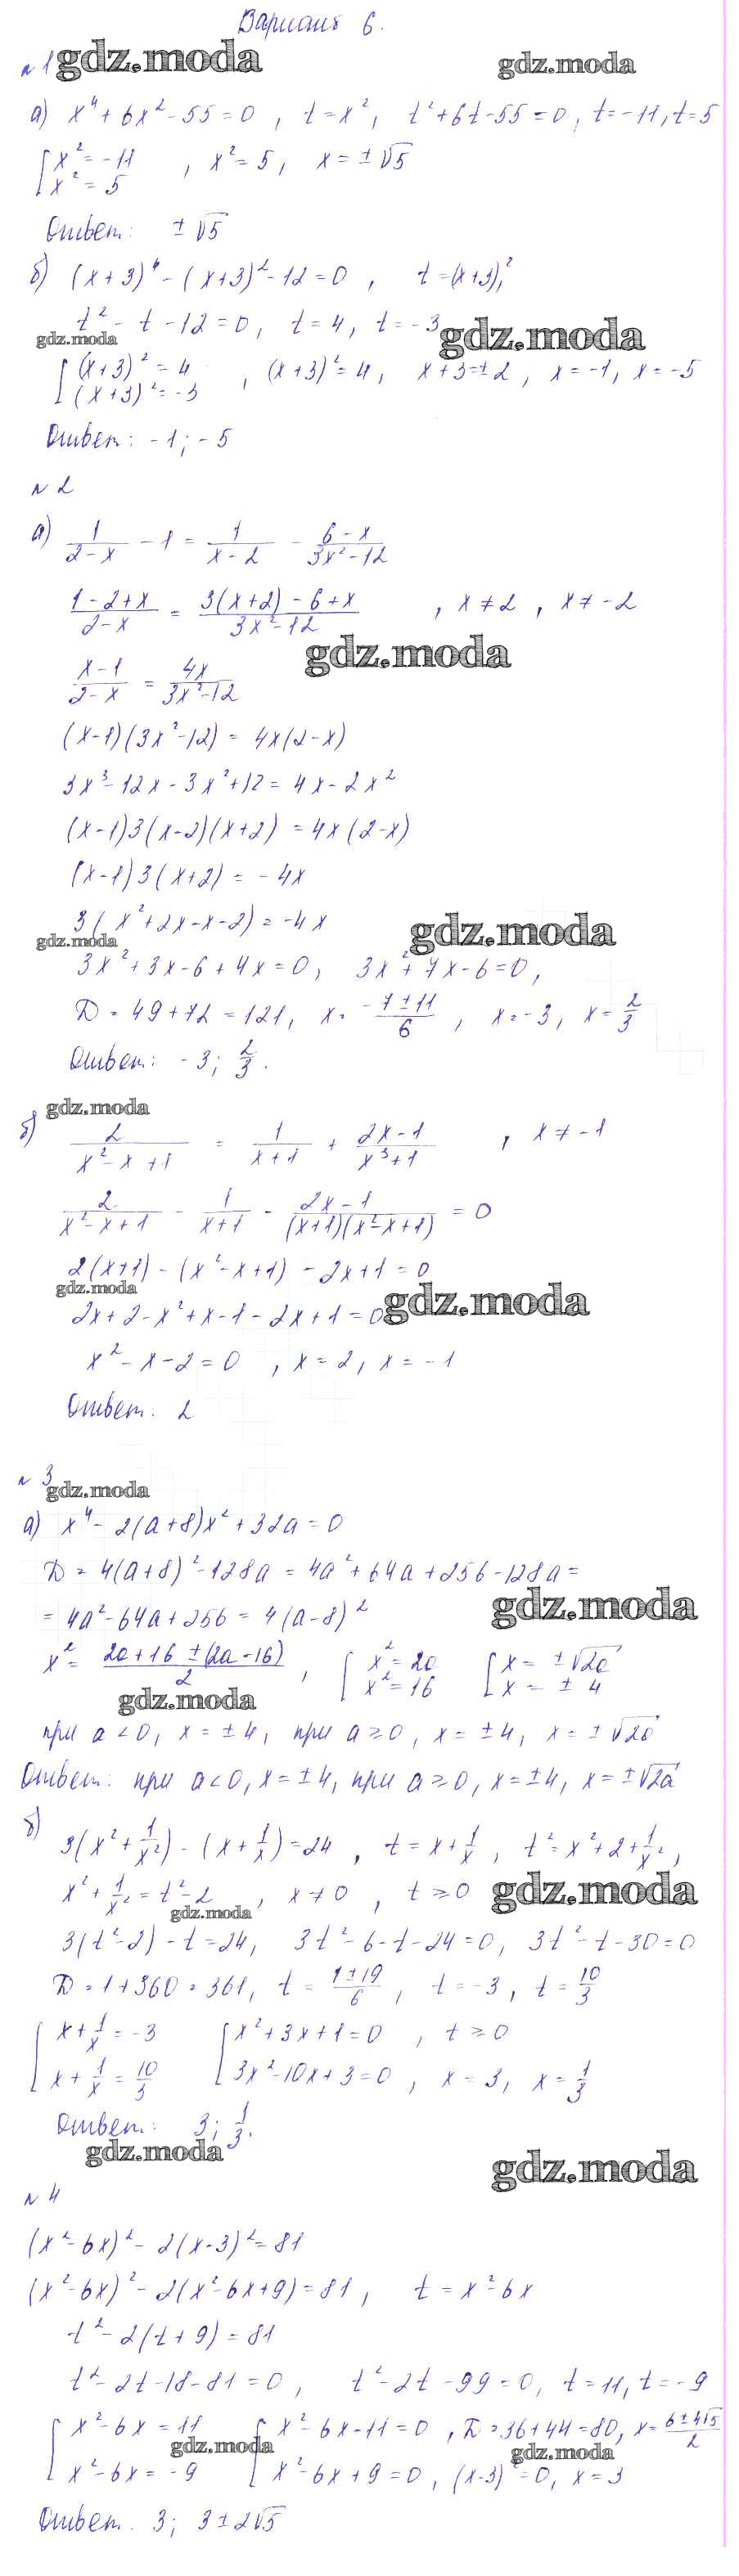 Вариант 6.
№1 gdz.moda gdz.moda
а) x⁴ + 6x² - 55 = 0 , t = x² , t² + 6t - 55 = 0 , t = -11, t = 5
[ x² = -11
x² = 5 , x² = 5 , x = ± √5
Ответ: ± √5
б) (x + 3)⁴ - (x + 3)² - 12 = 0 , t = (x + 3)² ,
t² - t - 12 = 0 , t = 4 , t = -3
gdz.moda gdz.moda
[ (x + 3)² = 4
(x + 3)² = -3 , (x + 3)² = 4 , x + 3 = ± 2 , x = -1 , x = -5
Ответ: -1 ; -5
№ 2
а) 1/(2 - x) - 1 = 1/(x - 2) - (6 - x)/(3x² - 12)
(1 - 2 + x)/(2 - x) = (3(x + 2) - 6 + x)/(3x² - 12) , x ≠ 2 , x ≠ -2
gdz.moda
(x - 1)/(2 - x) = 4x/(3x² - 12)
(x - 1)(3x² - 12) = 4x(2 - x)
3x³ - 12x - 3x² + 12 = 4x - 2x²
(x - 1)3(x - 2)(x + 2) = 4x(2 - x)
(x - 1)3(x + 2) = -4x
3(x² + 2x - x - 2) = -4x
gdz.moda gdz.moda
3x² + 3x - 6 + 4x = 0 , 3x² + 7x - 6 = 0 ,
D = 49 + 72 = 121 , x = (-7 ± 11)/6 , x = -3 , x = 2/3
Ответ: -3 ; 2/3 .
gdz.moda
б) 2/(x² - x + 1) = 1/(x + 1) + (2x - 1)/(x³ + 1) , x ≠ -1
2/(x² - x + 1) - 1/(x + 1) - (2x - 1)/((x + 1)(x² - x + 1)) = 0
2(x + 1) - (x² - x + 1) - 2x + 1 = 0
gdz.moda gdz.moda
2x + 2 - x² + x - 1 - 2x + 1 = 0
x² - x - 2 = 0 , x = 2 , x = -1
Ответ: 2
№ 3
gdz.moda
а) x⁴ - 2(a + 8)x² + 32a = 0
D = 4(a + 8)² - 128a = 4a² + 64a + 256 - 128a =
= 4a² - 64a + 256 = 4(a - 8)²
gdz.moda
x² = (2a + 16 ± (2a - 16))/2 , [ x² = 2a [ x = ± √2a
x² = 16 x = ± 4
gdz.moda
при a < 0 , x = ± 4 , при a ≥ 0 , x = ± 4 , x = ± √2a
Ответ: при a < 0 , x = ± 4 , при a ≥ 0 , x = ± 4 , x = ± √2a
б) 3(x² + 1/x²) - (x + 1/x) = 24 , t = x + 1/x , t² = x² + 2 + 1/x² ,
x² + 1/x² = t² - 2 , x ≠ 0 , t ≥ 0
gdz.moda gdz.moda
3(t² - 2) - t = 24 , 3t² - 6 - t - 24 = 0 , 3t² - t - 30 = 0
D = 1 + 360 = 361 , t = (1 ± 19)/6 , t = -3 , t = 10/3
[ x + 1/x = -3 [ x² + 3x + 1 = 0 , t ≥ 0
x + 1/x = 10/3 3x² - 10x + 3 = 0 , x = 3 , x = 1/3
Ответ: 3 ; 1/3 .
gdz.moda gdz.moda
№ 4
(x² - 6x)² - 2(x - 3)² = 81
(x² - 6x)² - 2(x² - 6x + 9) = 81 , t = x² - 6x
t² - 2(t + 9) = 81
t² - 2t - 18 - 81 = 0 , t² - 2t - 99 = 0 , t = 11 , t = -9
[ x² - 6x = 11 [ x² - 6x - 11 = 0 , D = 36 + 44 = 80 , x = (6 ± 4√5)/2
gdz.moda gdz.moda
x² - 6x = -9 x² - 6x + 9 = 0 , (x - 3)² = 0 , x = 3
Ответ. 3 ; 3 ± 2√5